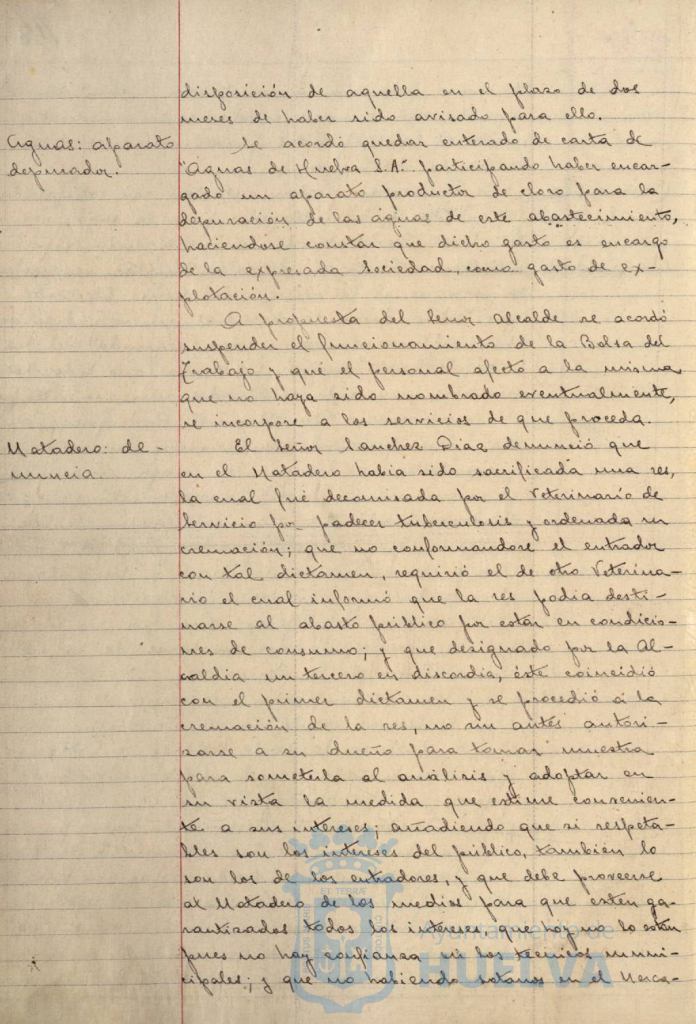 disposición de aquella en el plazo de dos
meses de haber sido avisado para ello.
Aguas: aparato
depurador.
Se acordó quedar enterado de carta de
"Aguas de Huelva S.A." participando haber encar-
gado un aparato productor de cloro para la
depuración de las aguas de este abastecimiento,
haciendose constar que dicho gasto es encargo
de la expresada Sociedad, como gasto de ex-
plotación.
A propuesta del Señor Alcalde se acordó
suspender el funcionamiento de la Bolsa del
Trabajo y que el personal afecto a la misma
que no haya sido nombrado eventualmente,
se incorpore a los servicios de que proceda.
Matadero: de-
nuncia.
El Señor Sanchez Diaz denunció que
en el Matadero habia sido sacrificada una res,
la cual fué decomisada por el Veterinario de
Servicio por padecer tuberculosis y ordenada su
cremación; que no conformandose el entrador
con tal dictamen, requirió el de otro Veterina-
rio el cual informó que la res podia desti-
narse al abasto público por estar en condicio-
nes de consumo; y que designado por la Al-
caldia un tercero en discordia, éste coincidió
con el primer dictamen y se procedió á la
cremación de la res, no sin antes autori-
zarse a su dueño para tomar muestra
para someterla al análisis y adoptar en
su vista la medida que estime convenien-
te a sus intereses; añadiendo que si respeta-
bles son los intereses del público, también lo
son los de los entradores, y que debe proveerse
al Matadero de los medios para que esten ga-
rantizados todos los intereses, que hoy no lo estan
pues no hay confianza en los técnicos muni-
cipales; y que no habiendo sotanos en el Merca-
Ayuntamiento de
HUELVA